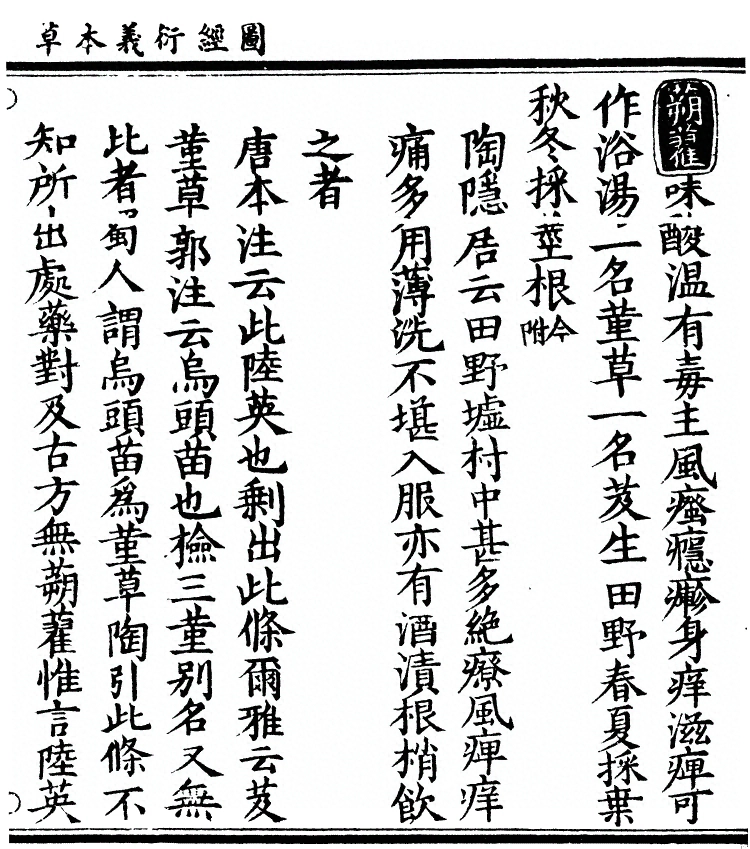 圖經衍義本草
蒴藋味酸温有毒主風瘙癮㾦身痒滋痺可
作浴湯一名菫草一名芨生田野春夏採葉
秋冬採莖根今附
陶隱居云田野墟村中甚多絶療風痺痒
痛多用薄洗不堪入服亦有酒漬根梢飲
之者
唐本注云此陸英也剩出此條爾雅云芨
菫草郭注云烏頭苗也檢三菫别名又無
比者蜀人謂烏頭苗爲菫草陶引此條不
知所出處藥對及古方無蒴藋惟言陸英